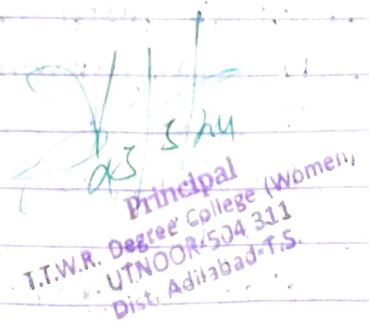 Principal
T.T.W.R. Degree College (Women),
UTNOOR-504 311
Dist. Adilabad-T.S.